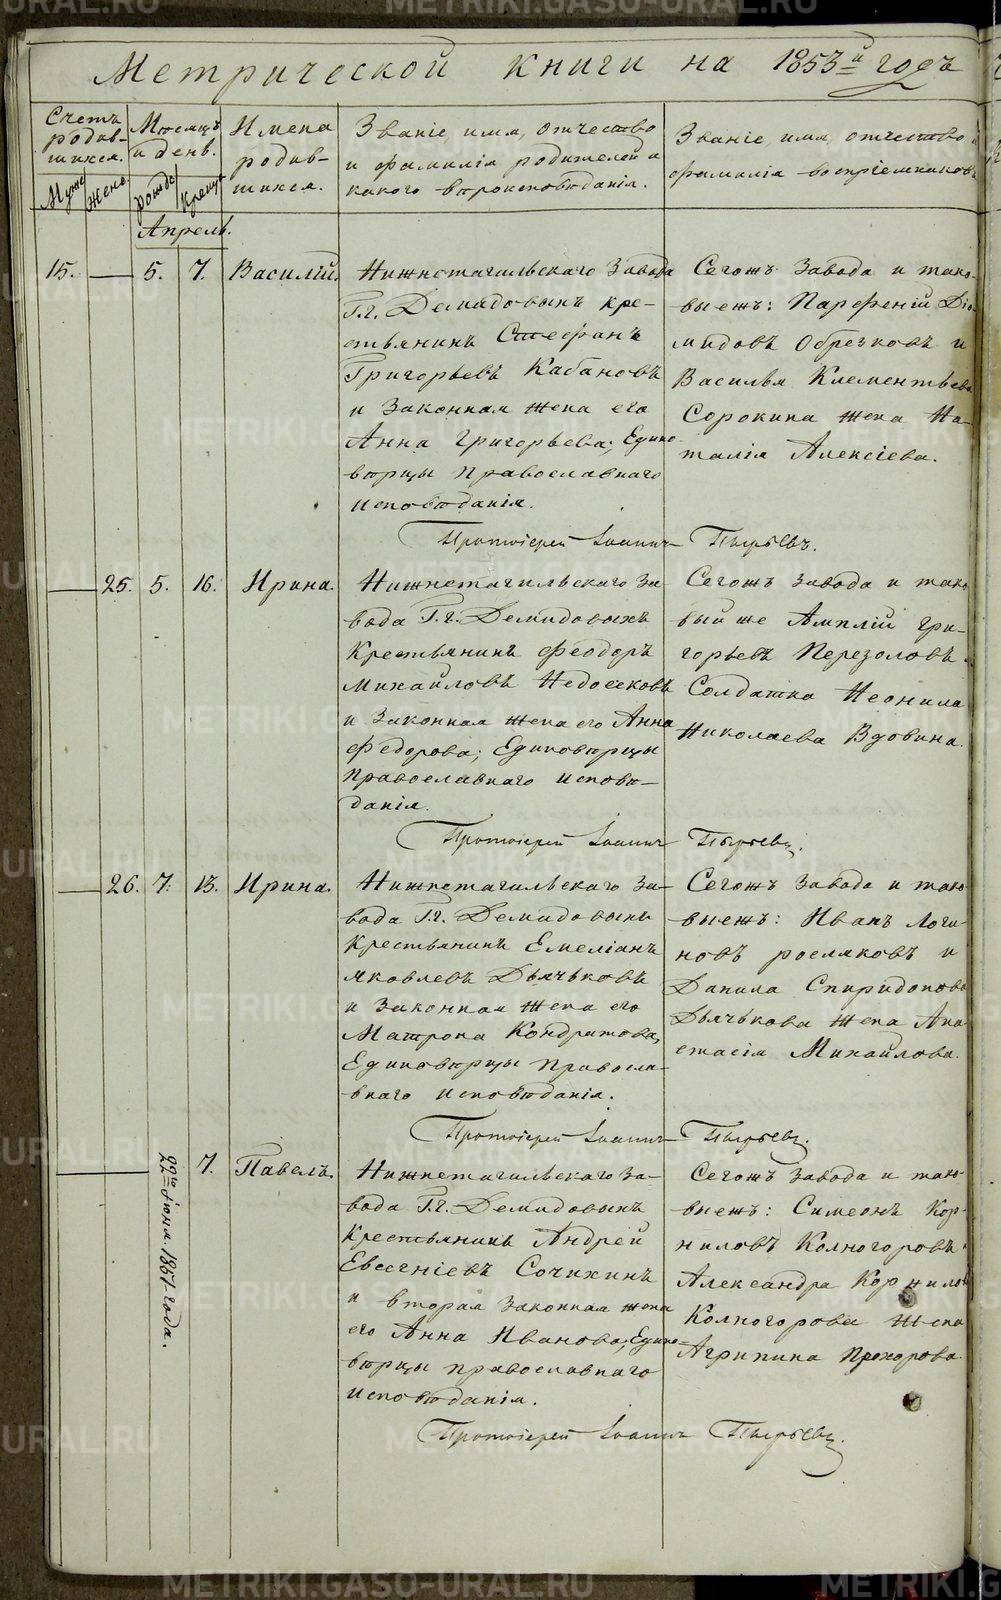 Метрической книги на 1853й годъ
Счетъ родив-
шихся.
Муж
Жено
Месяцъ
и день.
рожде
крещ
Имена
родив-
шихся.
Званіе имя, отчество
и фамилія родителей и
какого вероисповѣданія.
Званіе, имя, отчество и
фамилія воспріемниковъ
Апрель.
15.
5.
7.
Василій.
Нижнетагильскаго Завода
Г.г. Демидовыхъ кре-
стьянинъ Стефанъ
Григорьевъ Кабановъ
и Законная жена его
Анна Григорьева; Едино-
вѣрцы православнаго
исповѣданія.
Сегожъ Завода и тако-
выежъ: Парфеній Діо-
мидовъ Обрезковъ и
Василья Клементьева
Сорокина жена На-
талія Алексіева.
Протоіерей Іоаннъ Пырьевъ.
25.
5.
16.
Ирина.
Нижнетагильскаго За-
вода Г.г. Демидовыхъ
Крестьянинъ Феодоръ
Михайловъ Недосековъ
и Законная жена его Анна
Федорова; Единовѣрцы
православнаго исповѣ-
данія.
Сегожъ завода и тако-
вый же Амплій Гри-
горьевъ Перезоловъ
Солдатка Неонила
Николаева Вдовина.
Протоіерей Іоаннъ Пырьевъ.
26.
7.
13.
Ирина.
Нижнетагильскаго За-
вода Г.г. Демидовыхъ
Крестьянинъ Емеліанъ
Яковлевъ Дьячьковъ
и Законная жена его
Матрона Кондратова,
Единовѣрцы Правосла-
внаго исповѣданія.
Сегожъ Завода и тако-
выежъ: Иванъ Логи-
новъ росляковъ и
Данила Спиридонова
Дьячькова жена Ана-
стасія Михайлова.
Протоіерей Іоаннъ Пырьевъ.
22го Іюня 1851 года.
7.
Павелъ.
Нижнетагильскаго За-
вода Г.г. Демидовыхъ
Крестьянинъ Андрей
Евсегніевъ Сочихинъ
и вторая законная жена
его Анна Иванова; Едино-
вѣрцы православнаго
исповѣданія.
Сегожъ Завода и тако-
выежъ: Симеонъ Кор-
ниловъ Колногоровъ
Александра Корнилов
Колногорова жена
Агрипина Прохорова.
Протоіерей Іоаннъ Пырьевъ.
METRIKI.GASO-URAL.RU